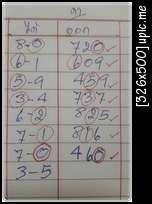 ให้ ออก
8-0 720 ✓
6-1 609 ✓
5-9 459 ✓
3-4 737 ✓
6-2 825 ✓
7-1 816 ✓
7-0 460 ✓
3-5
[326x500] upic.me